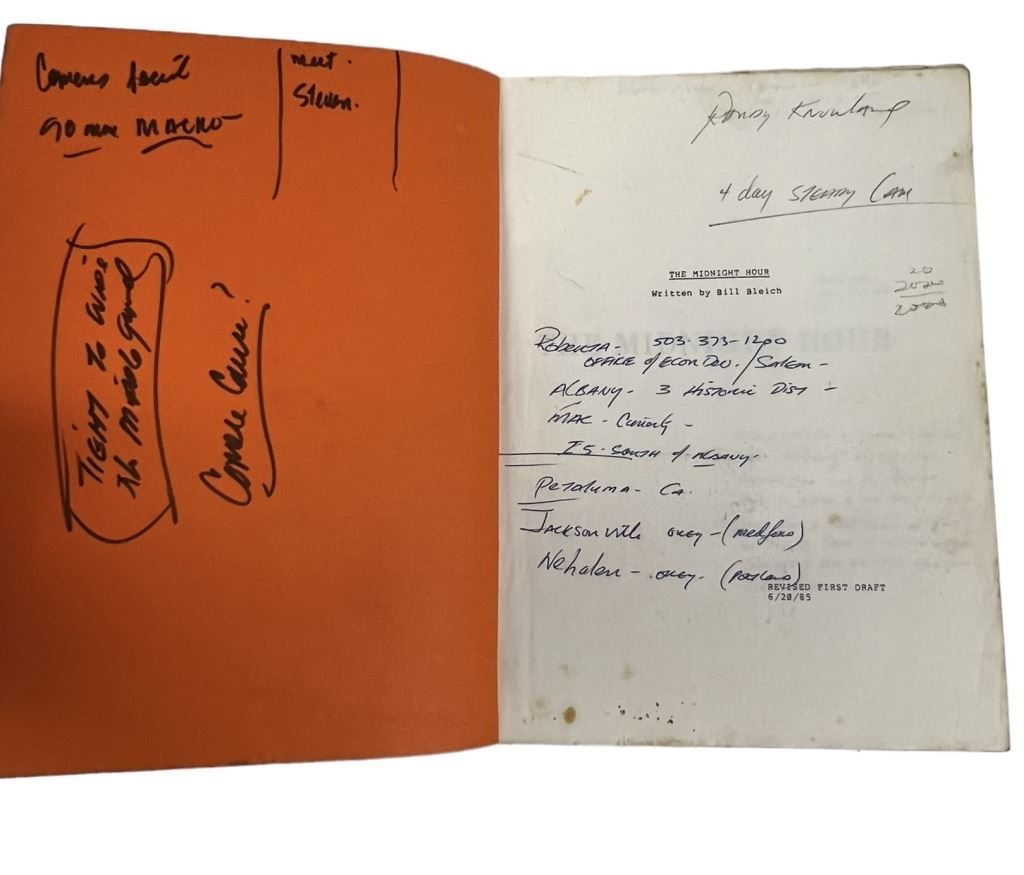 90 mm MACRO
meet.
Steven.
TIGHT TO WIDE
Randy Knowland
4 day STEADY CAM
THE MIDNIGHT HOUR
Written by Bill Bleich
20
ROBERTA - 503-373-1200
OFFICE of ECON DEV. / Salem -
ALBANY - 3 HISTORIC DIST -
MAC -
I5 - SOUTH of ALBANY -
PETALUMA - Ca.
JACKSONVILLE OREG - (medford)
Nehalem - OREG. (PORTLAND)
REVISED FIRST DRAFT
6/20/85